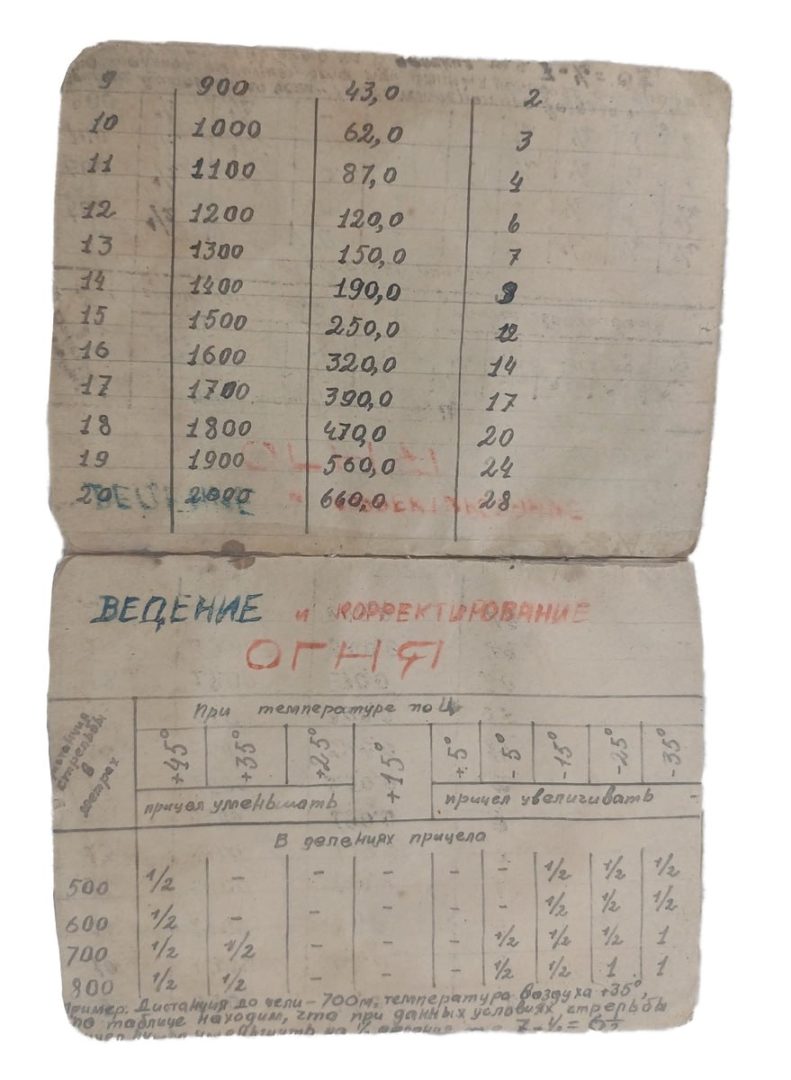 9 900 43,0 2
10 1000 62,0 3
11 1100 87,0 4
12 1200 120,0 6
13 1300 150,0 7
14 1400 190,0
15 1500 250,0 12
16 1600 320,0 14
17 1700 390,0 17
18 1800 470,0 20
19 1900 560,0 24
20 2000 660,0 28
ВЕДЕНИЕ и КОРРЕКТИРОВАНИЕ
ОГНЯ
стрельбы
в
метрах
При температуре по Ц
+45° +35° +25° +15° +5° -5° -15° -25° -35°
прицел уменьшать прицел увеличивать
В делениях прицела
500 1/2 - - - - - 1/2 1/2 1/2
600 1/2 - - - - - 1/2 1/2 1/2
700 1/2 1/2 - - - 1/2 1/2 1/2 1
800 1/2 1/2 - - - 1/2 1/2 1 1
Пример. Дистанция до цели - 700 м, температура воздуха +35°,
по таблице находим, что при данных условиях стрельбы
7 - 1/2 = 6 1/2